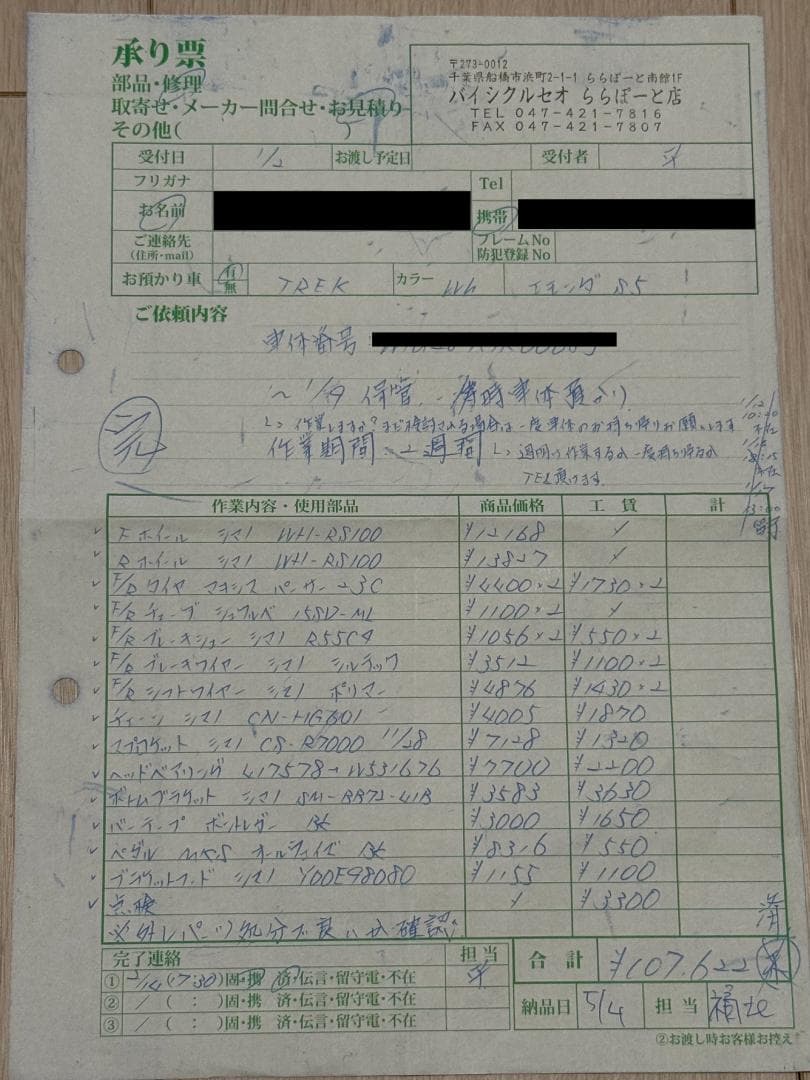 承り票
部品・修理
取寄せ・メーカー問合せ・お見積り
その他( )
〒273-0012
千葉県船橋市浜町2-1-1 ららぽーと南館1F
バイシクルセオ ららぽーと店
TEL 047-421-7816
FAX 047-421-7807
受付日 1/2 お渡し予定日 受付者 平
フリガナ Tel
お名前 携帯
ご連絡先 (住所・mail) フレームNo 防犯登録No
お預かり車 有 無 TREK カラー Wh エモンダ S5
ご依頼内容
車体番号
~ 1/19 保管. 一時車体預かり
作業期間 2週間
TEL頂けます.
作業内容・使用部品 商品価格 工賃 計
Fホイール シマノ WH-RS100 ¥12168
Rホイール シマノ WH-RS100 ¥13827
F/Rタイヤ マキシス パーサー 23C ¥4400×2 ¥1730×2
F/Rチューブ シュワルベ 15SV-ML ¥1100×2
F/Rブレーキシュー シマノ R55C4 ¥1056×2 ¥550×2
F/Rブレーキワイヤー シマノ シルテック ¥3512 ¥1100×2
F/Rシフトワイヤー シマノ ポリマー ¥4876 ¥1430×2
チェーン シマノ CN-HG601 ¥4005 ¥1870
スプロケット シマノ CS-R7000 11/28 ¥7128 ¥1320
ヘッドベアリング 417578→W531676 ¥7700 ¥2200
ボトムブラケット シマノ SM-BB72-41B ¥3583 ¥3630
バーテープ ボントレガー Bk ¥3000 ¥1650
ペダル MKS オールウェイズ Bk ¥8316 ¥550
ブラケットフード シマノ Y0DE98080 ¥1155 ¥1100
点検 ¥3300
※外したパーツ処分で良いか確認! 済
完了連絡 担当
① 2/14(17:30)固・携 済・伝言・留守電・不在 平
② /( : )固・携 済・伝言・留守電・不在
③ /( : )固・携 済・伝言・留守電・不在
合計 ¥107.622
納品日 5/4 担当
②お渡し時お客様お控え